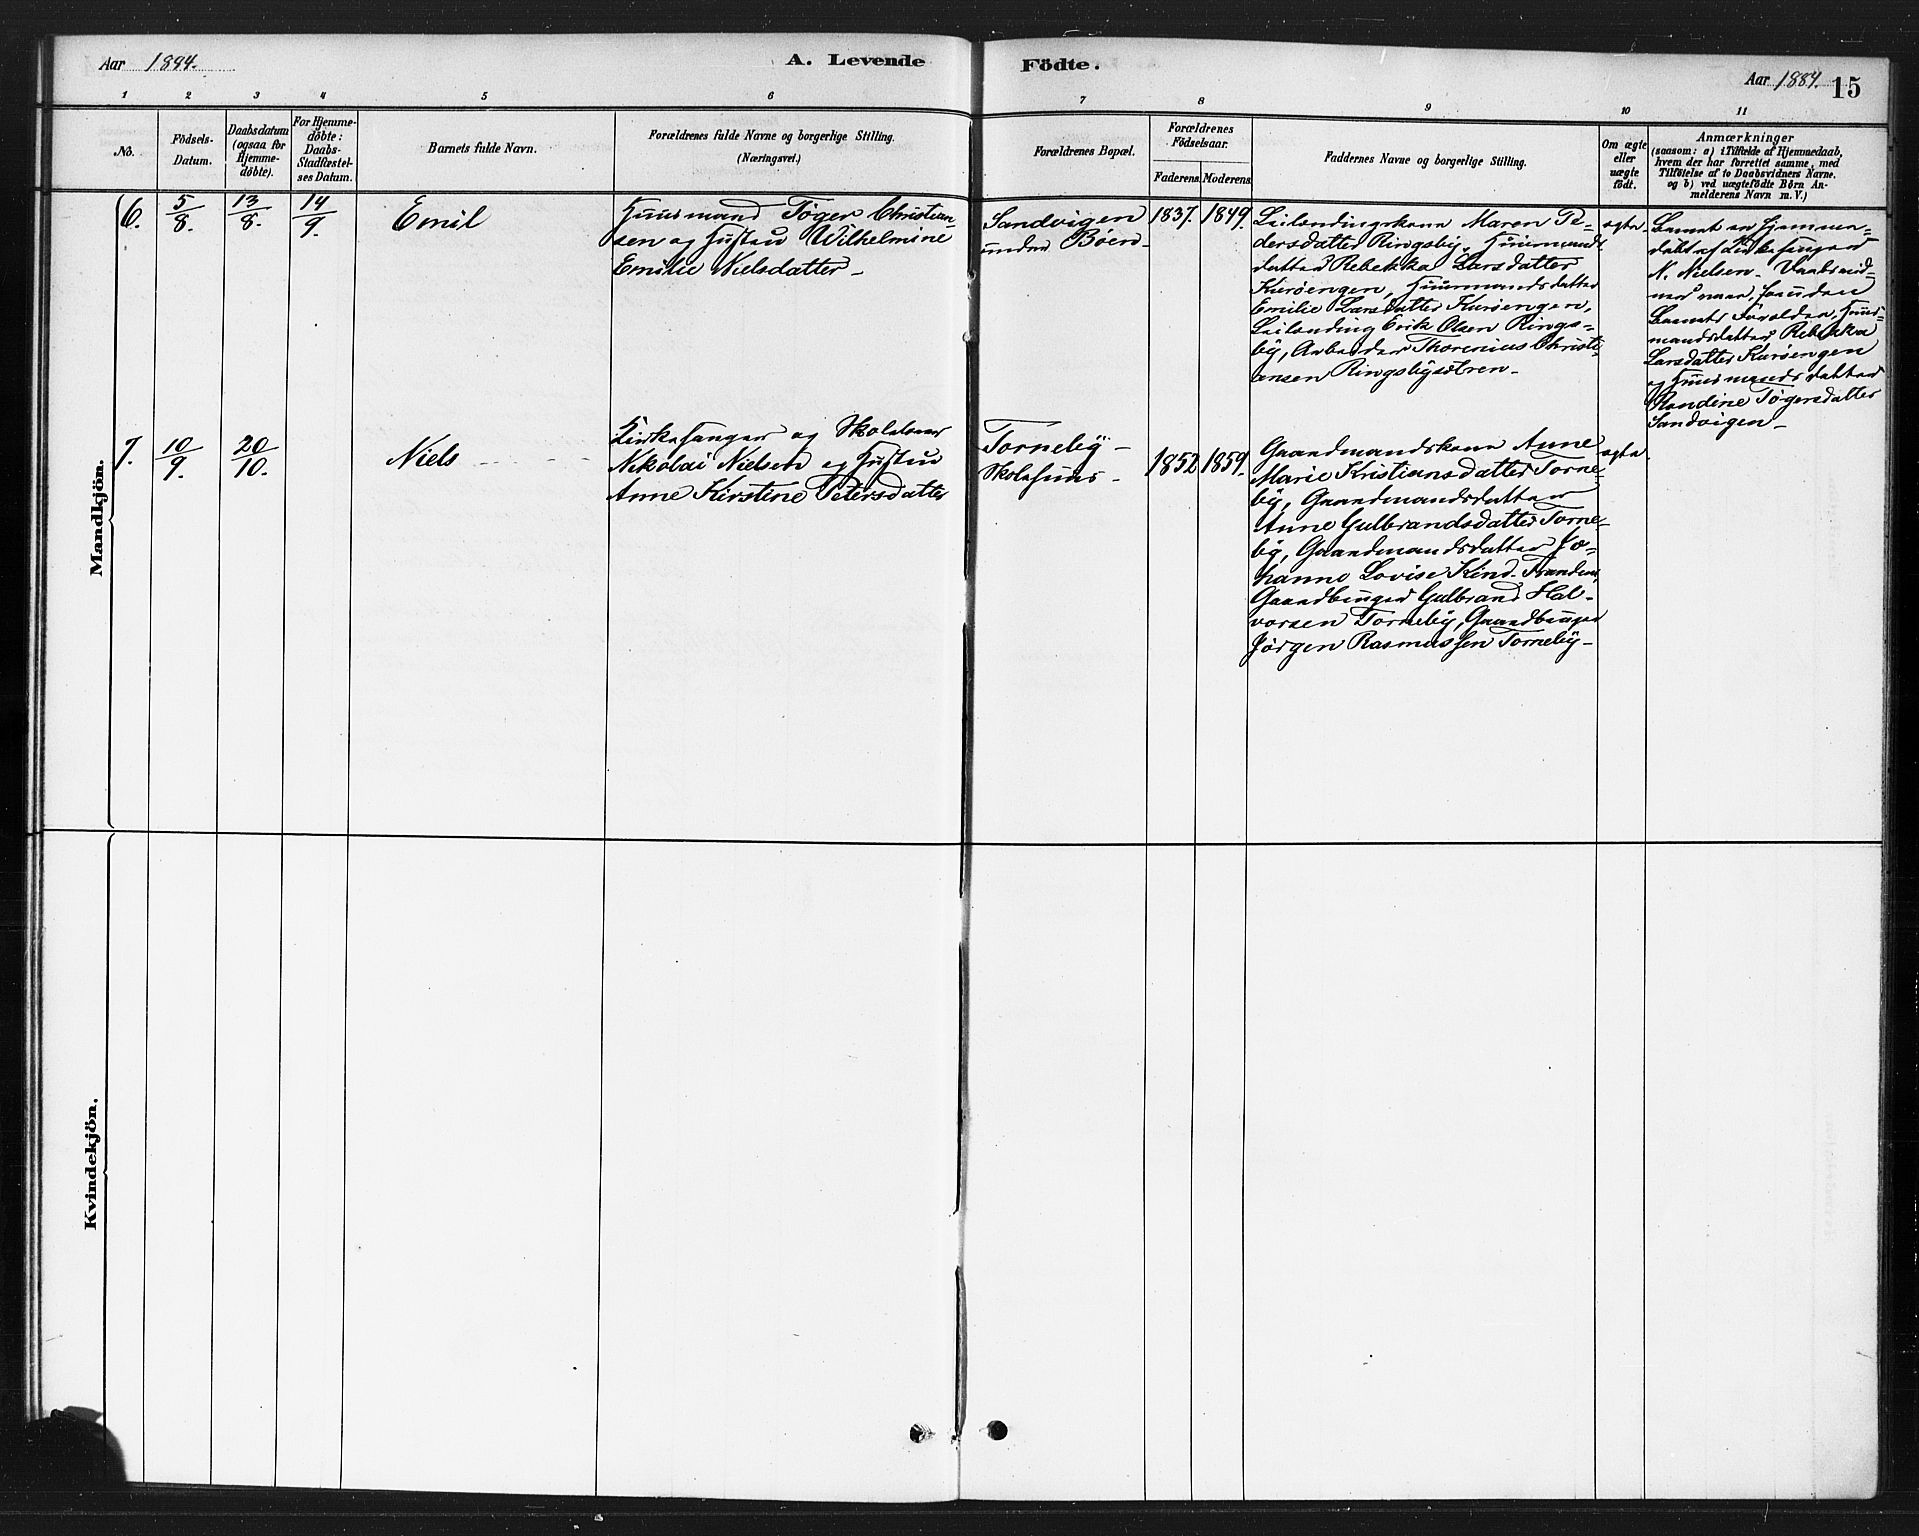 Aar 1894.
A. Levende Födte.
Aar 1884.
15
1 2 3 4 5 6 7 8 9 10 11
No.
Födsels-
Datum.
Daabsdatum
(ogsaa for
Hjemme-
döbte).
For Hjemme-
döbte:
Daabs-
Stadfæstel-
ses Datum.
Barnets fulde Navn.
Forældrenes fulde Navne og borgerlige Stilling.
(Næringsvei.)
Forældrenes Bopæl.
Forældrenes
Födselsaar.
Faderens. Moderens.
Faddernes Navne og borgerlige Stilling.
Om ægte
eller
uægte
födt.
Anmærkninger
(saasom: a) i Tilfælde af Hjemmedaab,
hvem der har forrettet samme, med
Tilföielse af to Daabsvidners Navne.
og b) ved uægtefödte Börn An-
melderens Navn m. V.)
Mandkjön.
6.
5/8.
13/8.
14/9.
Emil
Huusmand Töger Christian-
sen og Hustru Wilhelmine
Emilie Nielsdatter-
Sandvigen
under Böen-
1837. 1849.
Leilændingskone Maren Pe-
dersdatter Ringsby, Huusmands
datter Rebekka Larsdatter
Kuröengen, Huusmandsdatter
Emilie Larsdatter Kuröengen,
Leilænding Erik Olsen Rings-
by, Arbeider Thorenius Christi-
ansen Ringsbysætren-
ægte.
Barnet er hjemme-
döbt af Kirkesanger
N. Nielsen. Daabsvid-
ner vare, foruden
Barnets Forældre, Huus-
mandsdatter Rebekka
Larsdatter Kuröengen
og Huusmandsdatter
Randine Tögersdatter
Sandvigen-
7.
10/9.
20/10.
Niels
Kirkesanger og Skolelærer
Nikolai Nielsen og Hustru
Anne Kirstine Petersdatter
Torneby-
Skolehuus-
1852 1859.
Gaardmandskone Anne
Marie Kristiansdatter Torne-
by, Gaardmandsdatter
Anne Gulbrandsdatter Torne-
by, Gaardmandsdatter Jo-
hanne Lovise Kind-
Gaardbruger Gulbrand Hal-
vorsen Torneby, Gaardbruger
Jörgen Rasmussen Torneby-
ægte.
Kvindekjön.